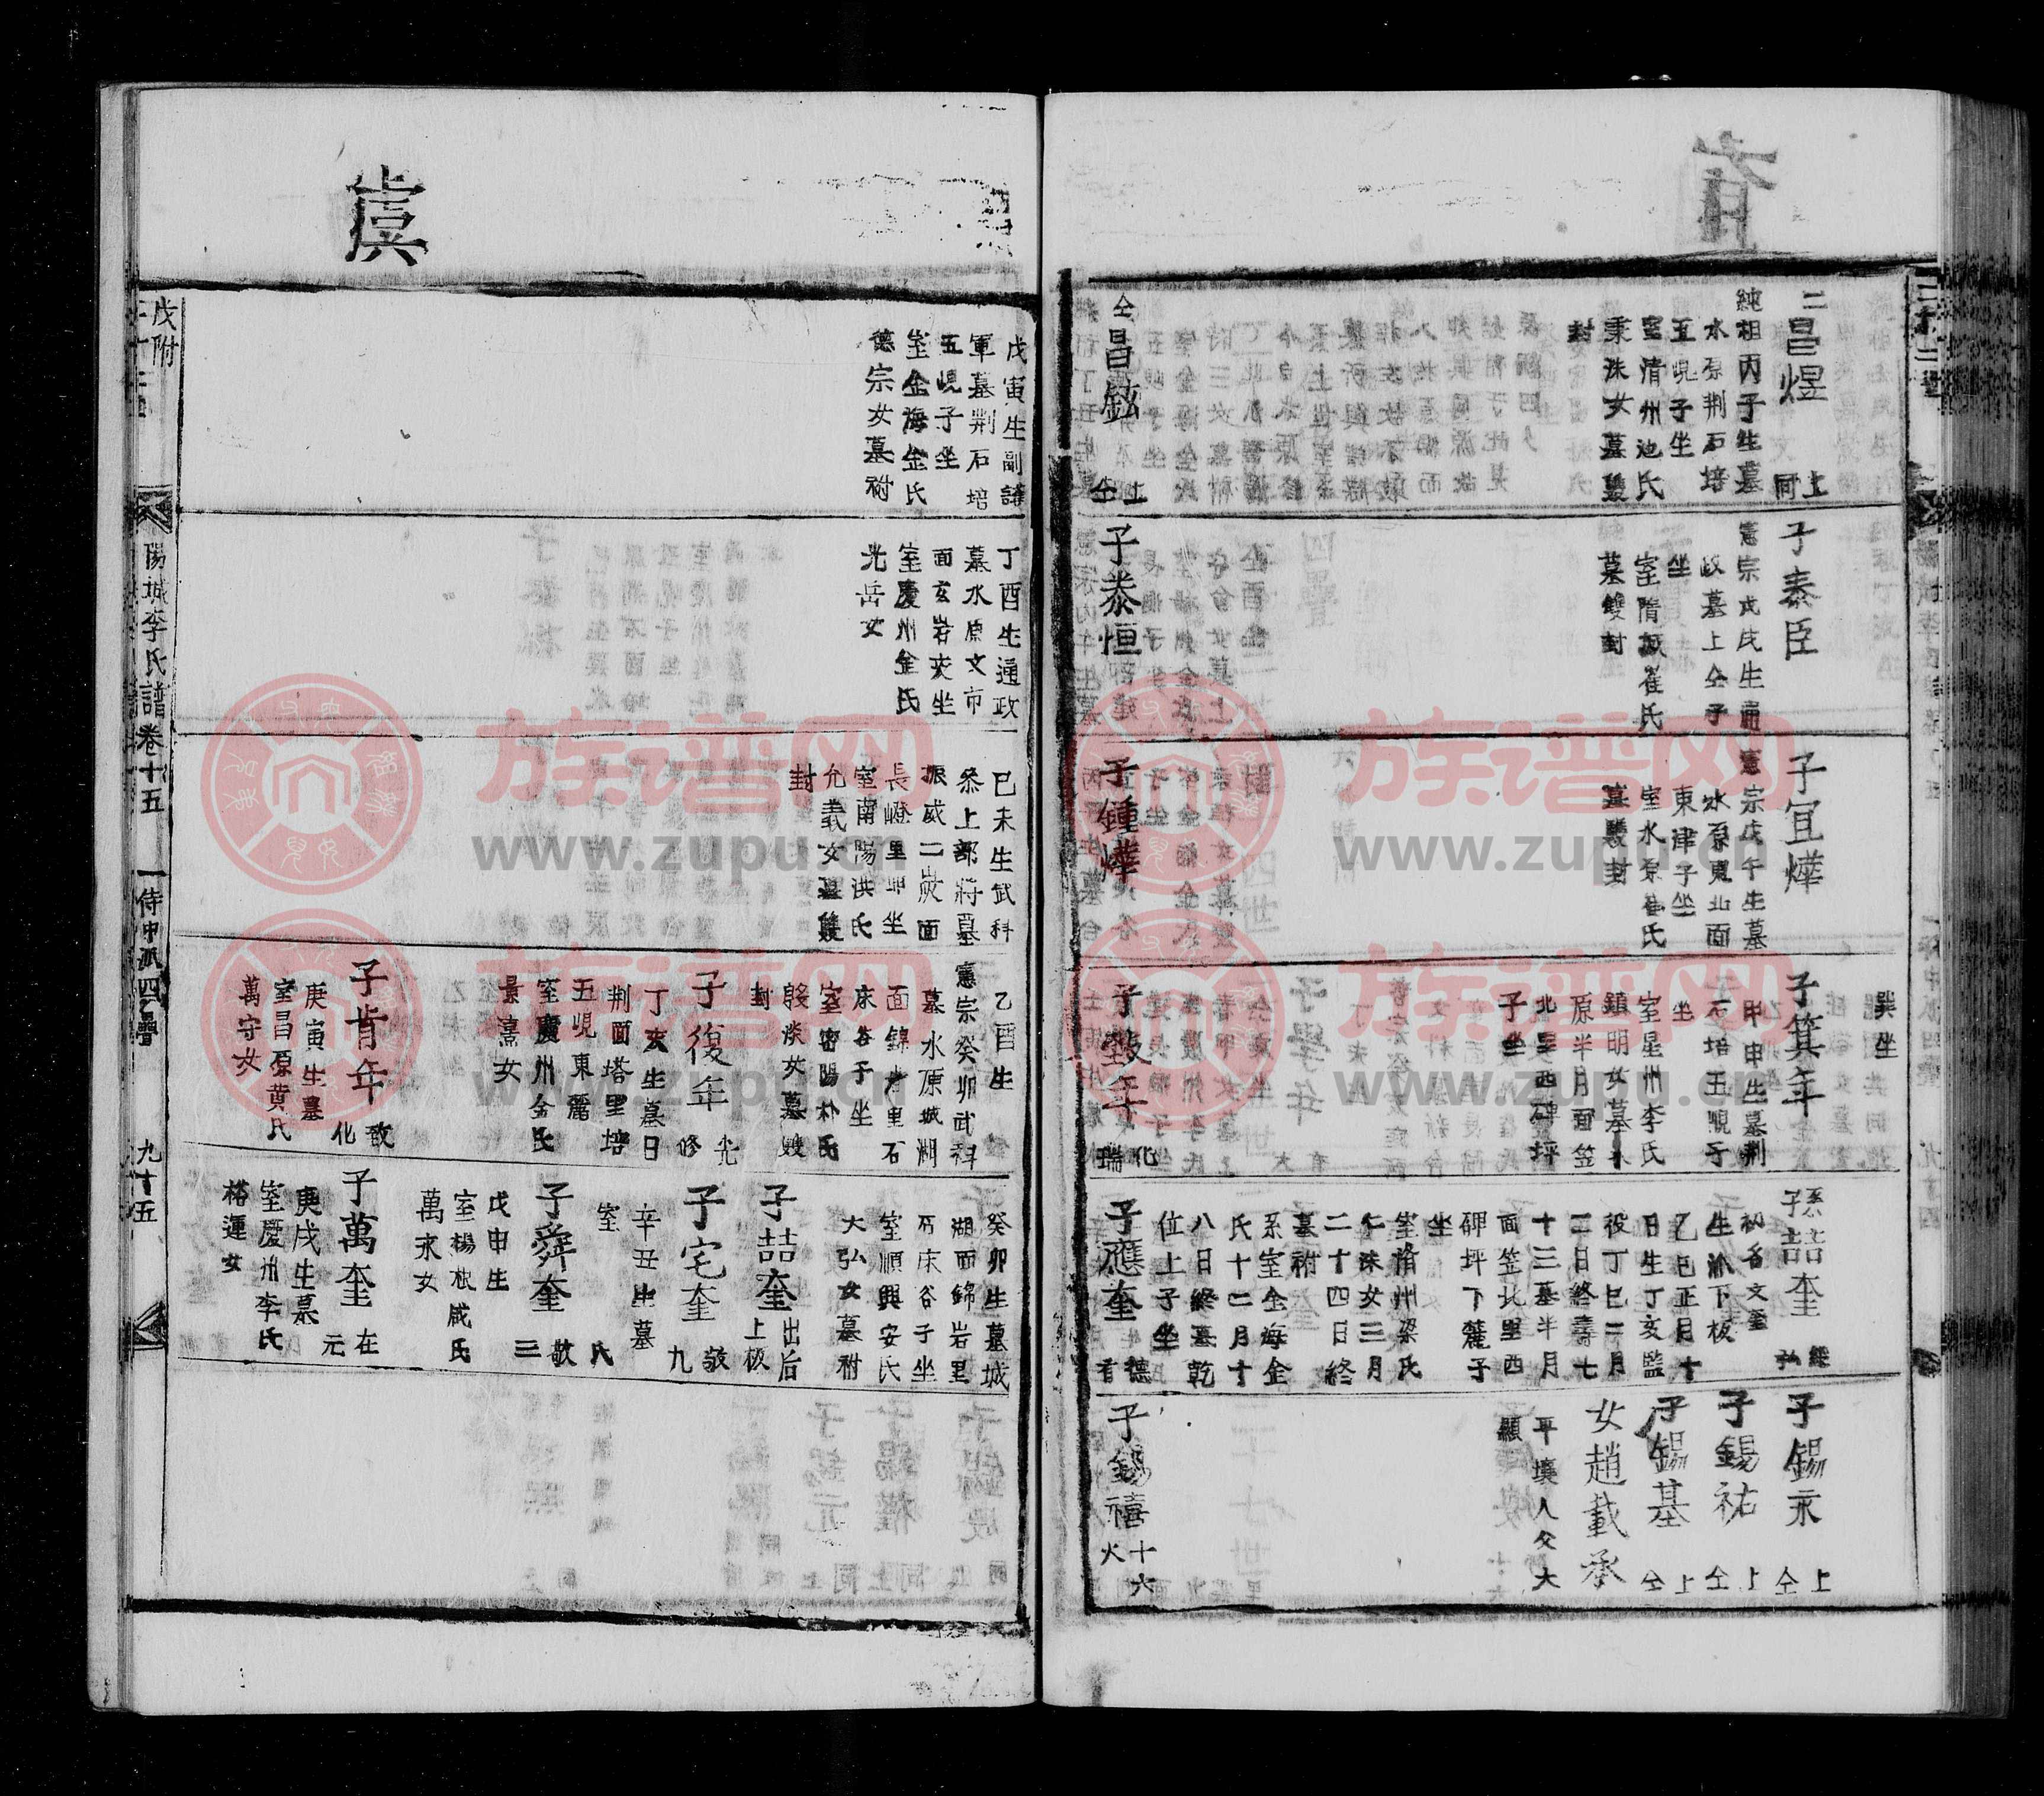 二昌煜
上同
純祖丙子生墓
水原荆石培
五峴子坐
室清州池氏
秉洙女墓雙
封
仝昌鉉
上仝
子泰臣
憲宗戊戌生通
政墓上仝子
坐
室隋城崔氏
墓雙封
子泰恒
子宜燁
憲宗戊午生墓
水原鬼北面
東津子坐
室水原崔氏
墓雙封
子鍾燁
巽坐
子箕年
甲申生墓荆
石培五峴子
坐
室星州李氏
鎮明女墓水
原半月面笠
北里西碑坪
子坐
子整年
化瑞
孫喆奎
初名文奎
生派下板
乙巳正月十
日生丁亥監
役丁巳二月
二日終壽七
十三墓半月
面笠北里西
碑坪下麓子
坐
室脩州梁氏
仁洙女三月
二十四日終
墓祔
系室金海金
氏十二月十
八日終墓乾
位上子坐
子應奎
德肯
子錫永
上仝
子錫祐
上仝
子錫基
上仝
女趙載承
平壤人父大
顯
子錫禧
十六
虞
戊寅生副護
軍墓荆石培
五峴子坐
室金海金氏
德宗女墓祔
丁酉生通政
墓水原文市
面玄岩亥坐
室慶州金氏
光岳女
己未生武科
叅上部將墓
振威二炭面
長嶝里卯坐
室南陽洪氏
允義女墓雙
封
乙酉生
憲宗癸卯武科
墓水原城湖
面錦岩里石
床谷子坐
室密陽朴氏
封
子復年
光修
丁亥生墓日
荆面塔里培
五峴東麓
室慶州金氏
景熹女
子肯年
致化
庚寅生墓
室昌原黄氏
萬守女
癸卯生墓城
湖面錦岩里
石床谷子坐
室順興安氏
大弘女墓祔
子喆奎
出后
上板
子宅奎
敬九
辛丑生墓
室
氏
子舜奎
敬三
戊申生
室楊根咸氏
萬永女
子萬奎
在元
庚戌生墓
室慶州李氏
裕運女
戊附
陽城李氏譜卷十五
侍中派四疊
九十五
族谱网
www.zupu.cn
族谱网
www.zupu.cn
族谱网
www.zupu.cn
族谱网
www.zupu.cn